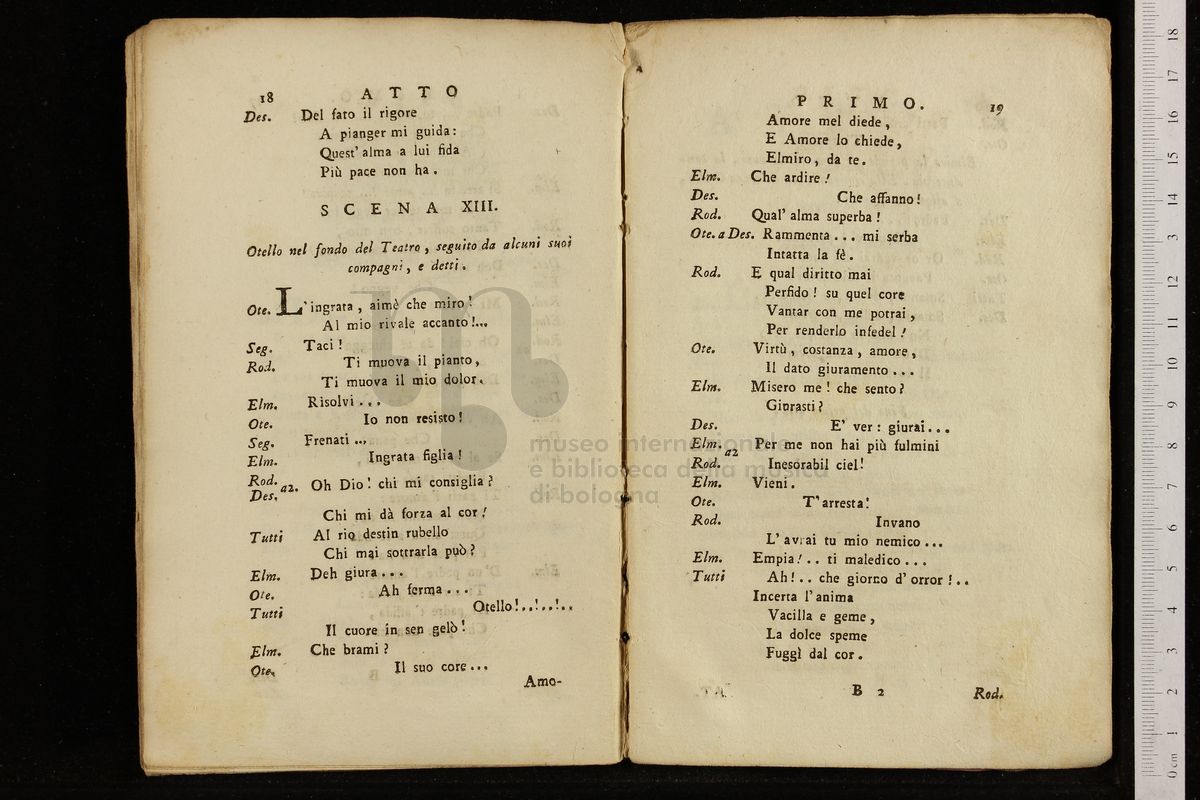 18 ATTO
Des. Del fato il rigore
A pianger mi guida:
Quest' alma a lui fida
Più pace non ha.
SCENA XIII.
Otello nel fondo del Teatro, seguito da alcuni suoi
compagni, e detti.
Ote. L'ingrata, aimè che miro!
Al mio rivale accanto!...
Seg. Taci!
Rod. Ti muova il pianto,
Ti muova il mio dolor.
Elm. Risolvi...
Ote. Io non resisto!
Seg. Frenati...
Elm. Ingrata figlia!
Rod. Des. a2. Oh Dio! chi mi consiglia?
Chi mi dà forza al cor!
Tutti Al rio destin rubello
Chi mai sottrarla può?
Elm. Deh giura...
Ote. Ah ferma...
Tutti Otello!..!..!..
Il cuore in sen gelò!
Elm. Che brami?
Ote. Il suo core...
Amo-
PRIMO. 19
Amore mel diede,
E Amore lo chiede,
Elmiro, da te.
Elm. Che ardire!
Des. Che affanno!
Rod. Qual' alma superba!
Ote. a Des. Rammenta... mi serba
Intatta la fè.
Rod. E qual diritto mai
Perfido! su quel core
Vantar con me potrai,
Per renderlo infedel!
Ote. Virtù, costanza, amore,
Il dato giuramento...
Elm. Misero me! che sento?
Giurasti?
Des. E' ver: giurai...
Elm. a2 Per me non hai più fulmini
Rod. Inesorabil ciel!
Elm. Vieni.
Ote. T'arresta!
Rod. Invano
L'avrai tu mio nemico...
Elm. Empia!.. ti maledico...
Tutti Ah!.. che giorno d'orror!..
Incerta l'anima
Vacilla e geme,
La dolce speme
Fuggì dal cor.
B 2 Rod.
museo internazionale
e biblioteca della musica
di bologna
0 cm 1 2 3 4 5 6 7 8 9 10 11 12 13 14 15 16 17 18